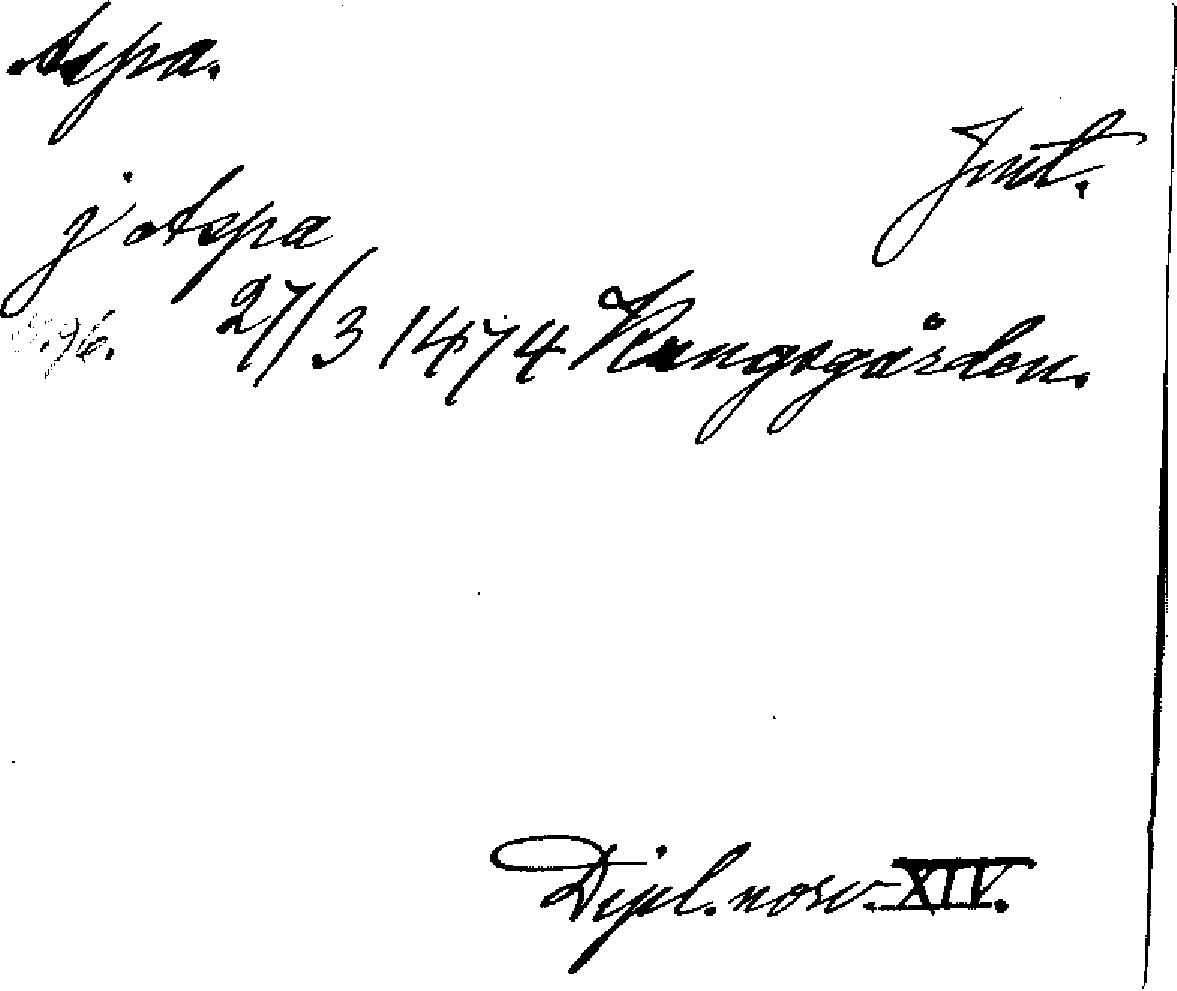 Aspa.
Jmt.
j Aspa
s. 96. 27/3 1474 Kungsgården.
Dipl. norv. XIV.